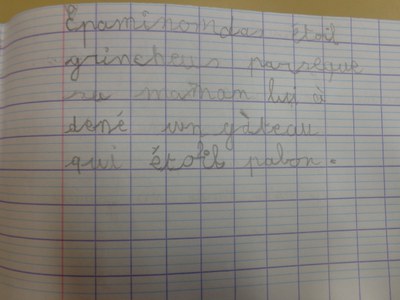 Épaminondas étoit
grincheus parseque
sa maman lui à
doné un gâteau
qui étoit pabon.